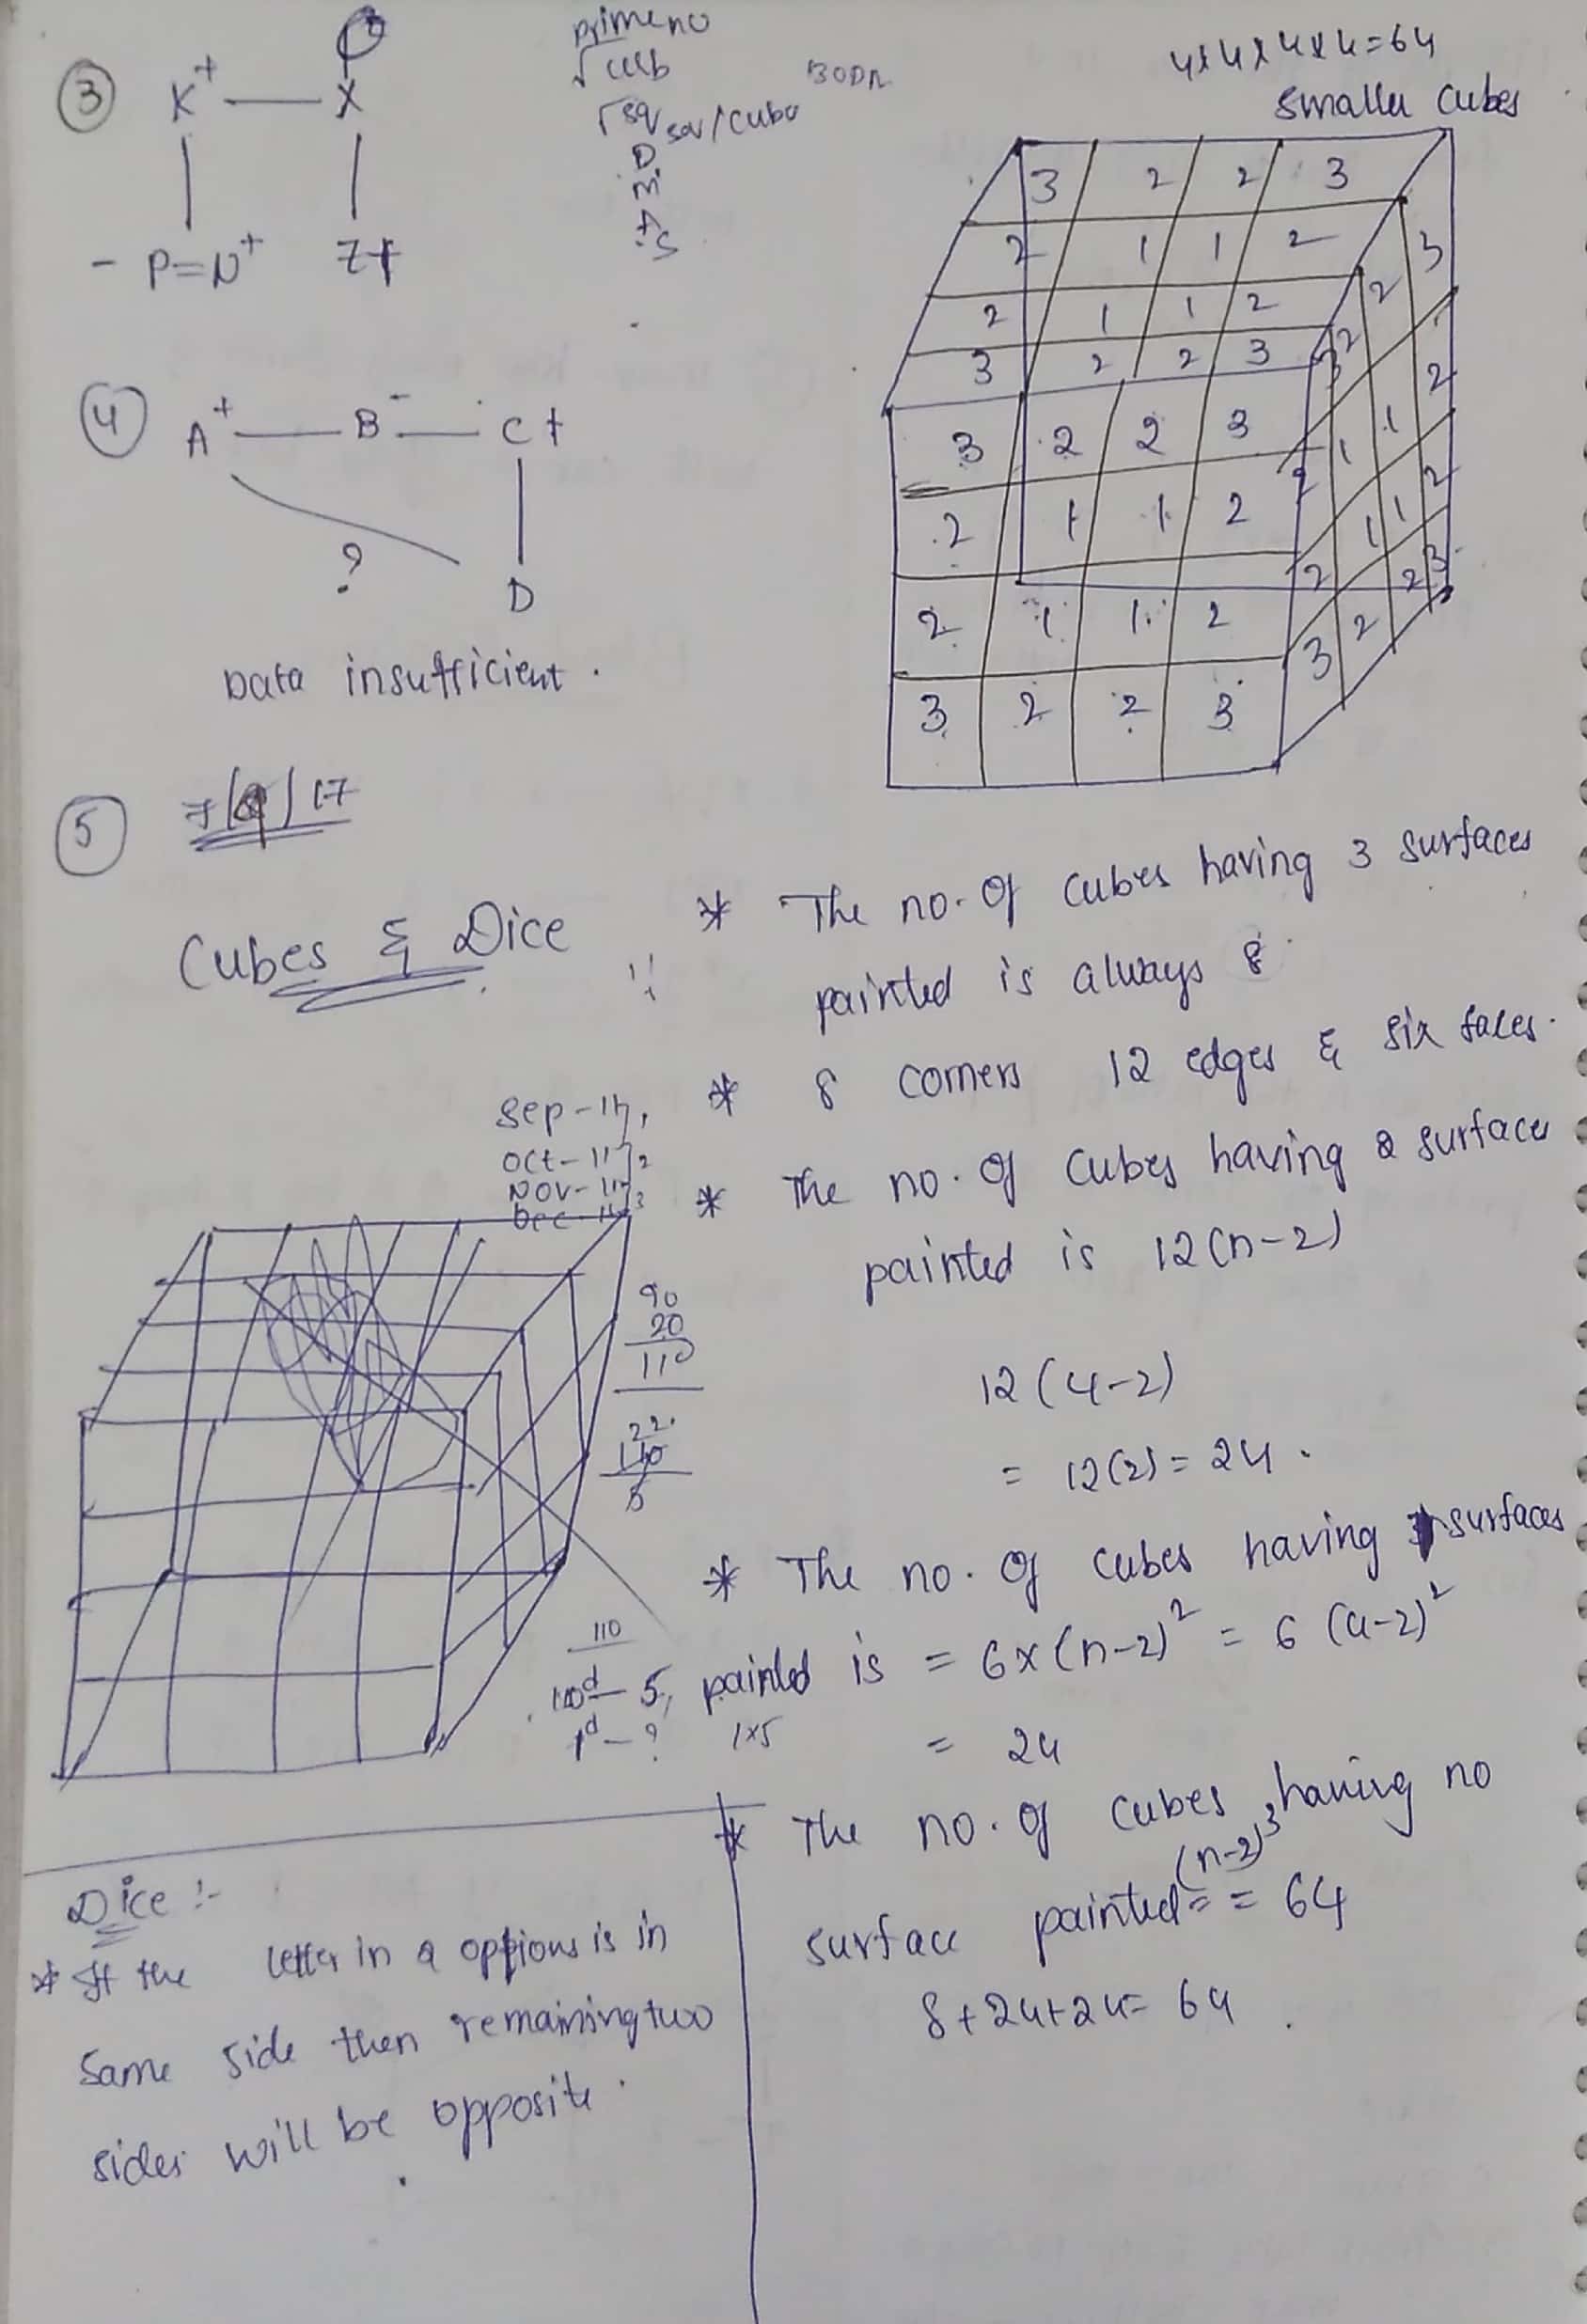 prime no
√cub
√sq
sqr/cube
D
M
A
S
BODM
4x4x4x4=64
smaller cubes
3 K+ — X
- P=N+ Z+
3 2 2 3
2 1 1 2
2 1 1 2
3 2 2 3
3 2 2 3
2 1 1 2
2 1 1 2
3 2 2 3
4 A+ — B- — C+
?
D
Data insufficient.
5 7/9/17
Cubes & Dice
* The no. of cubes having 3 surfaces
painted is always 8
* 8 corners 12 edges & six faces.
* The no. of cubes having 2 surfaces
painted is 12(n-2)
12(4-2)
= 12(2) = 24.
* The no. of cubes having 1 surfaces
painted is = 6x(n-2)² = 6(4-2)²
= 24
* The no. of cubes having no
(n-2)³
surface painted = = 64
8+24+24= 64.
Sep-17,
Oct-17
Nov-17
Dec-
90
20
110
22
110
5
110
110d - 5,
1d - ?
1x5
Dice :-
* If the letter in 2 options is in
same side then remaining two
sides will be opposite.